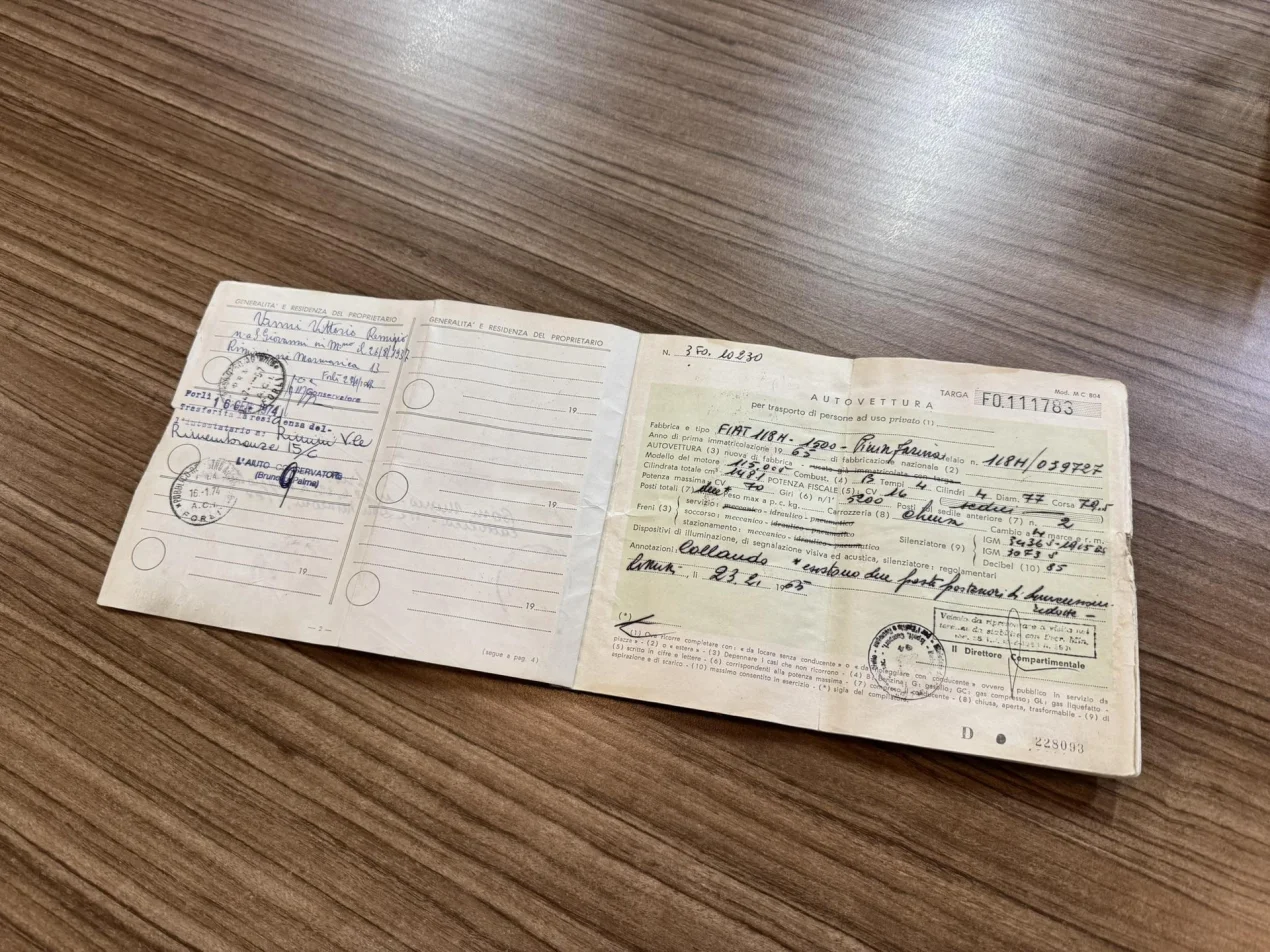 GENERALITA' E RESIDENZA DEL PROPRIETARIO
Vanni Vittorio Remigio
Forlì
Forlì 16 1974
Trasferito la residenza del-
l'intestatario a: Rimini Vle
Rimembranze 15/C
L'AIUTO CONSERVATORE
(Bruno Palma)
16-1.74
A.C.I.
FORLI
19
— 2 —
GENERALITA' E RESIDENZA DEL PROPRIETARIO
19
19
19
(segue a pag. 4)
N. 3 FO. 10230
Mod. M C 804
AUTOVETTURA
TARGA FO.111783
per trasporto di persone ad uso privato (1)
Fabbrica e tipo FIAT 118H - 1500 - Pininfarina telaio n. 118H/039727
Anno di prima immatricolazione 19 65 di fabbricazione nazionale (2)
AUTOVETTURA (3) nuova di fabbrica - usata già immatricolata targa
Modello del motore 115.005 Combust. (4) B Tempi 4 Cilindri 4 Diam. 77 Corsa 79.5
Cilindrata totale cm³ 1481 POTENZA FISCALE (5) CV 16 (sedici)
Potenza massima CV 70 Giri (6) n/1' 5200 Posti sedile anteriore (7) n. 2
Posti totali (7) Peso max a p. c. kg. Carrozzeria (8) chiusa Cambio a 4 marce e r. m.
Freni (3) servizio: meccanico - idraulico - pneumatico
soccorso: meccanico - idraulico - pneumatico
stazionamento: meccanico - idraulico - pneumatico
Silenziatore (9) IGM
IGM 1073 S
Decibel (10) 85
Dispositivi di illuminazione, di segnalazione visiva ed acustica, silenziatore: regolamentari
Annotazioni: Collaudo esistono due posti posteriori di dimensioni
ridotte -
Rimini, lì 23.2. 1965
(*)
Il Direttore Compartimentale
(1) Ove ricorre completare con: « da locare senza conducente » o « da noleggiare con conducente » ovvero « pubblico in servizio da
piazza » - (2) o « estera » - (3) Depennare i casi che non ricorrono - (4) B: benzina G: gasolio; GC: gas compresso; GL: gas liquefatto -
(5) scritto in cifre e lettere - (6) corrispondenti alla potenza massima - (7) compreso conducente - (8) chiusa, aperta, trasformabile - (9) di
aspirazione e di scarico - (10) massimo consentito in esercizio - (*) sigla del compilatore.
D 228093